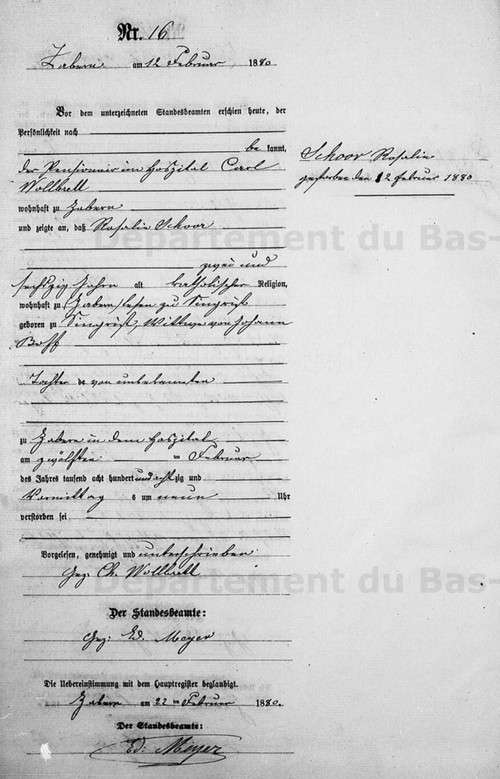 Nr. 16
Zabern am 12 Februar 1880
Vor dem unterzeichneten Standesbeamten erschien heute, der
Persönlichkeit nach
be kannt,
der Pensionär im Hospital Carl
Wollbrett
wohnhaft zu Zabern
und zeigte an, daß Rosalie Schoor
zwei und
sechszig Jahre alt katholischer Religion,
wohnhaft zu Zabern zu Singrist
geboren zu Singrist, Wittwe von Johann
Boff
Tochter von unbekannten
zu Zabern in dem Hospital
am zwölften ten Februar
des Jahres tausend acht hundert und achtzig und
Vormittag s um neun Uhr
verstorben sei
Vorgelesen, genehmigt und unterschrieben
Gez: Ch. Wollbrett
Der Standesbeamte:
Gez: Ed. Meyer
Die Uebereinstimmung mit dem Hauptregister beglaubigt.
Zabern am 22 ten Februar 1880.
Der Standesbeamte:
Ed. Meyer
Schoor Rosalie
gestorben den 12 Februar 1880
Département du Bas-
Département du Bas-